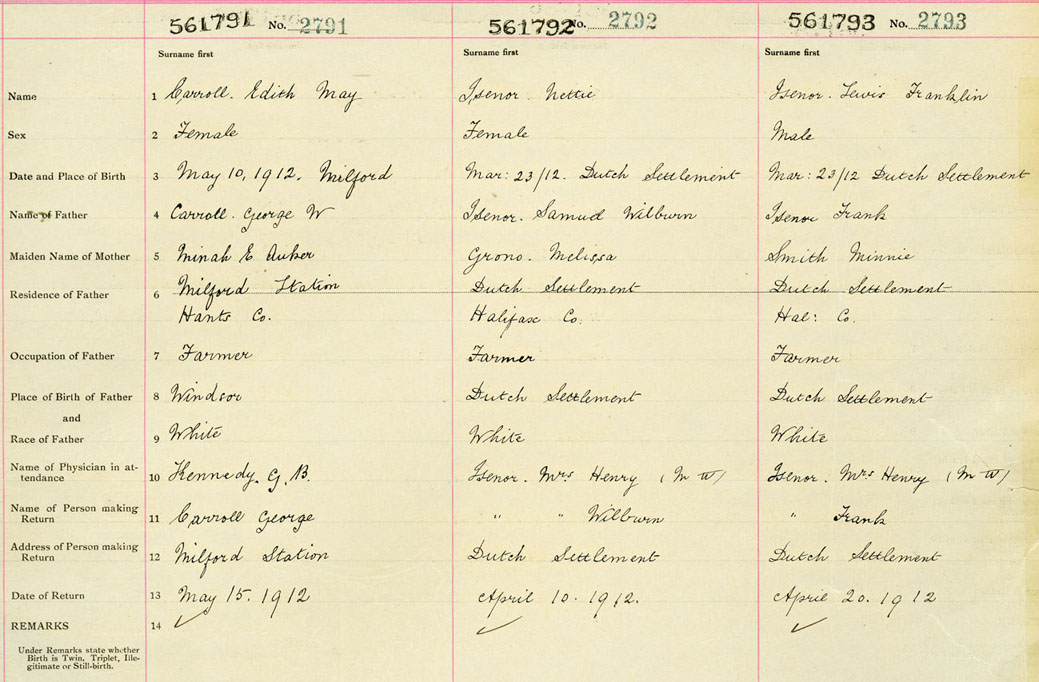 561791 No. 2791 561792 No. 2792 561793 No. 2793
Surname first Surname first Surname first
Name 1 Carroll. Edith May Isenor. Nettie Isenor. Lewis Franklin
Sex 2 Female Female Male
Date and Place of Birth 3 May 10, 1912. Milford Mar: 23/12. Dutch Settlement Mar: 23/12 Dutch Settlement
Name of Father 4 Carroll. George W Isenor. Samuel Wilburn Isenor Frank
Maiden Name of Mother 5 Minah E Auker Grono. Melissa Smith Minnie
Residence of Father 6 Milford Station Dutch Settlement Dutch Settlement
Hants Co. Halifax Co. Hal: Co.
Occupation of Father 7 Farmer Farmer Farmer
Place of Birth of Father 8 Windsor Dutch Settlement Dutch Settlement
and
Race of Father 9 White White White
Name of Physician in at-
tendance 10 Kennedy. G. B. Isenor. Mrs Henry (M W) Isenor. Mrs Henry (M W)
Name of Person making
Return 11 Carroll George " " Wilburn " Frank
Address of Person making
Return 12 Milford Station Dutch Settlement Dutch Settlement
Date of Return 13 May 15. 1912 April 10. 1912. April 20. 1912
REMARKS 14 ✓ ✓ ✓
Under Remarks state whether
Birth is Twin, Triplet, Ille-
gitimate or Still-birth.